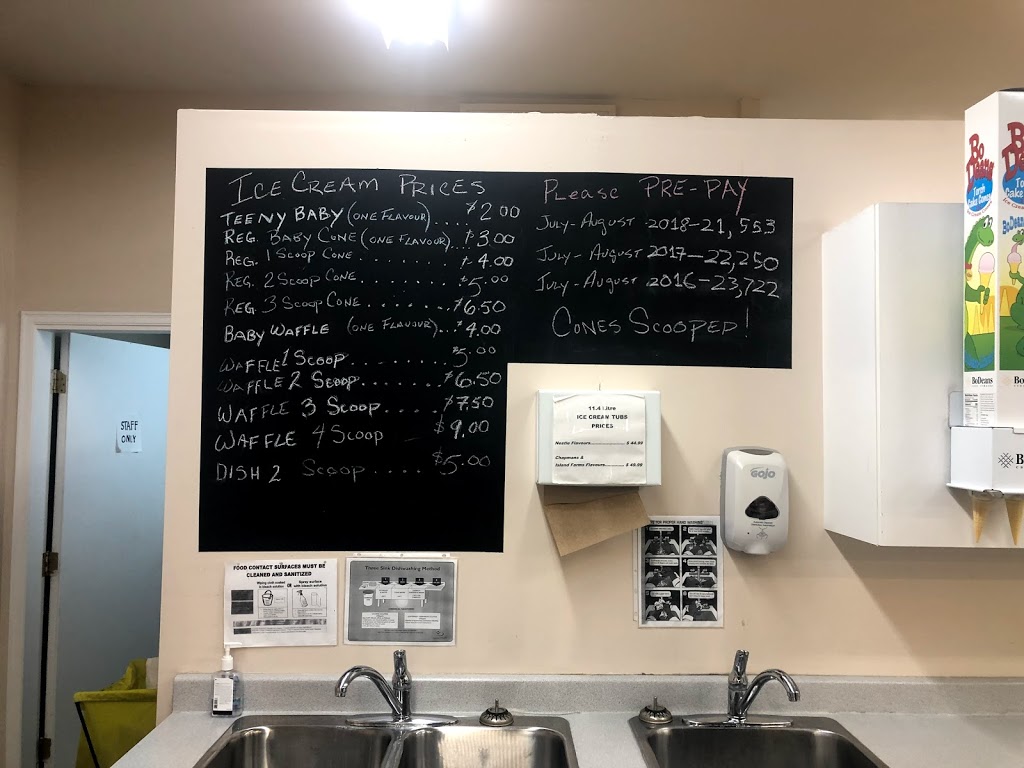 ICE CREAM PRICES
TEENY BABY (ONE FLAVOUR).... $2.00
REG. BABY CONE (ONE FLAVOUR)... $3.00
REG. 1 SCOOP CONE ........ $4.00
REG. 2 SCOOP CONE ........ $5.00
REG. 3 SCOOP CONE ........ $6.50
BABY WAFFLE (ONE FLAVOUR)... $4.00
WAFFLE 1 SCOOP ........ $5.00
WAFFLE 2 SCOOP ........ $6.50
WAFFLE 3 SCOOP .... $7.50
WAFFLE 4 SCOOP $9.00
DISH 2 SCOOP .... $5.00
Please PRE-PAY
JULY-AUGUST 2018-21,553
JULY-AUGUST 2017-22,250
JULY-AUGUST 2016-23,722
CONES SCOOPED!
11.4 Litre
ICE CREAM TUBS
PRICES
Nestle Flavours
Chapmans &
Island Farms Flavours
GOJO
STAFF
ONLY
FOOD CONTACT SURFACES MUST BE
CLEANED AND SANITIZED
OR
Dishwashing Method
BO
DEANS
BoDeans